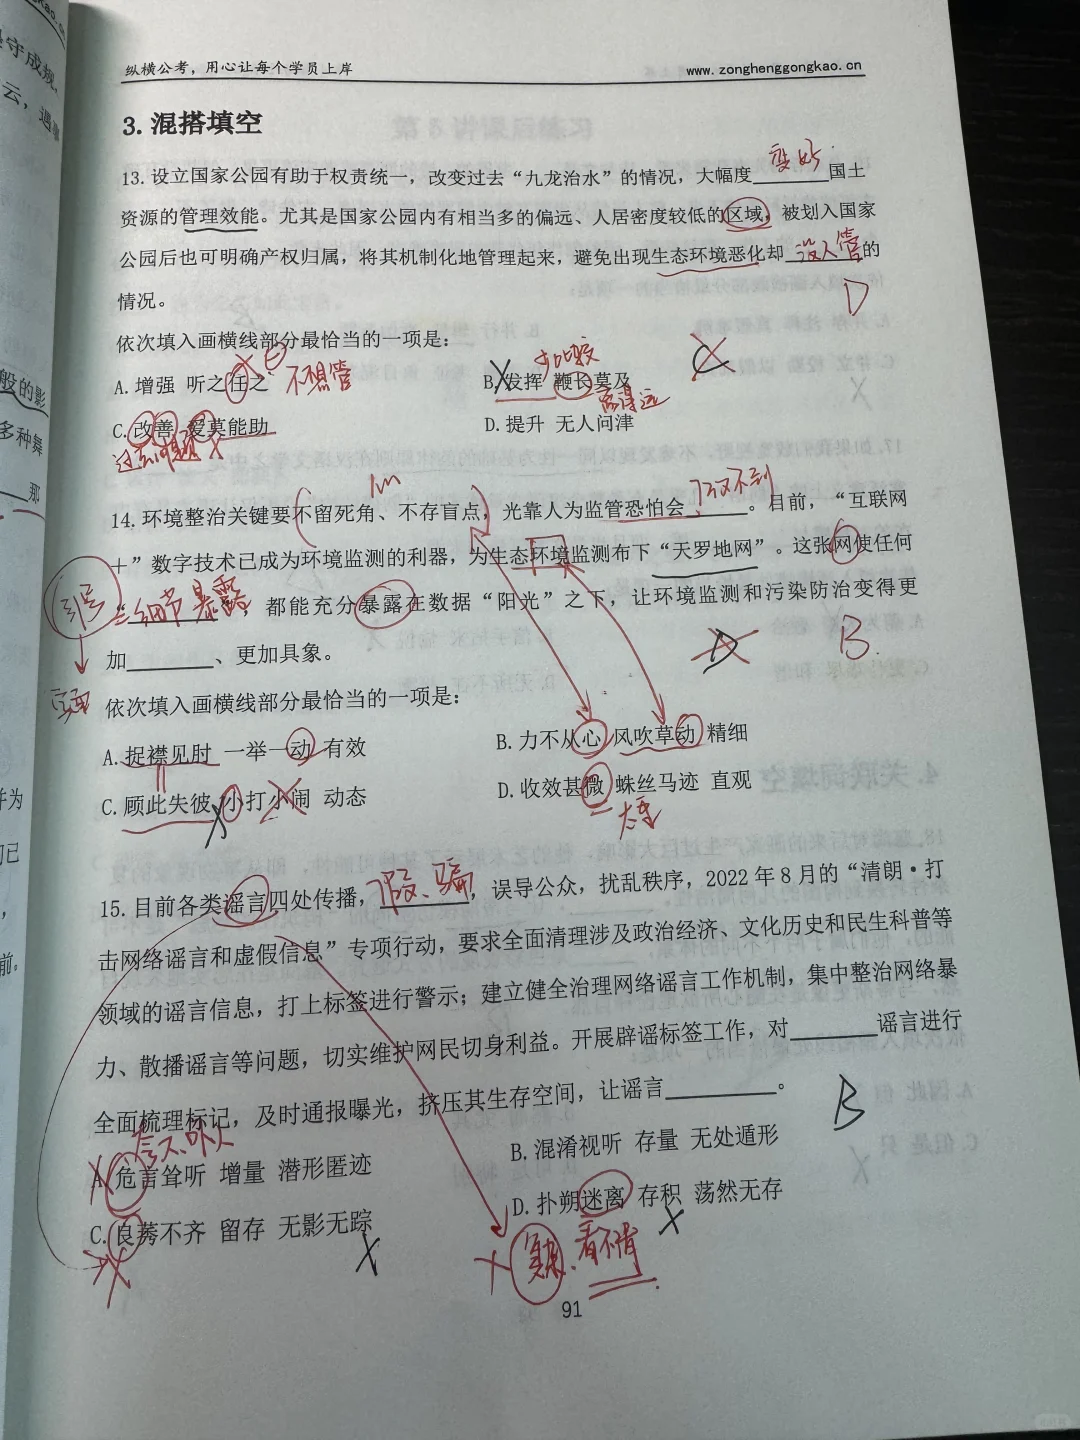 纵横公考，用心让每个学员上岸
www.zonghenggongkao.cn
3. 混搭填空
变好
13. 设立国家公园有助于权责统一，改变过去“九龙治水”的情况，大幅度________国土
资源的管理效能。尤其是国家公园内有相当多的偏远、人居密度较低的区域，被划入国家
公园后也可明确产权归属，将其机制化地管理起来，避免出现生态环境恶化却________的
没人管
情况。
D
依次填入画横线部分最恰当的一项是：
C
A. 增强 听之任之
不想管
B. 发挥 鞭长莫及
离得远
C. 改善 爱莫能助
D. 提升 无人问津
14. 环境整治关键要不留死角、不存盲点，光靠人为监管恐怕会________。目前，“互联网
＋”数字技术已成为环境监测的利器，为生态环境监测布下“天罗地网”。这张网使任何
“________”，都能充分暴露在数据“阳光”之下，让环境监测和污染防治变得更
细节 暴露
引号
加________、更加具象。
D
B
依次填入画横线部分最恰当的一项是：
A. 捉襟见肘 一举一动 有效
B. 力不从心 风吹草动 精细
C. 顾此失彼 小打小闹 动态
D. 收效甚微 蛛丝马迹 直观
太重
假、骗
15. 目前各类谣言四处传播，________，误导公众，扰乱秩序，2022 年 8 月的“清朗·打
击网络谣言和虚假信息”专项行动，要求全面清理涉及政治经济、文化历史和民生科普等
领域的谣言信息，打上标签进行警示；建立健全治理网络谣言工作机制，集中整治网络暴
力、散播谣言等问题，切实维护网民切身利益。开展辟谣标签工作，对________谣言进行
全面梳理标记，及时通报曝光，挤压其生存空间，让谣言__________。
B
A. 危言耸听 增量 潜形匿迹
B. 混淆视听 存量 无处遁形
C. 良莠不齐 留存 无影无踪
D. 扑朔迷离 存积 荡然无存
看不清
91